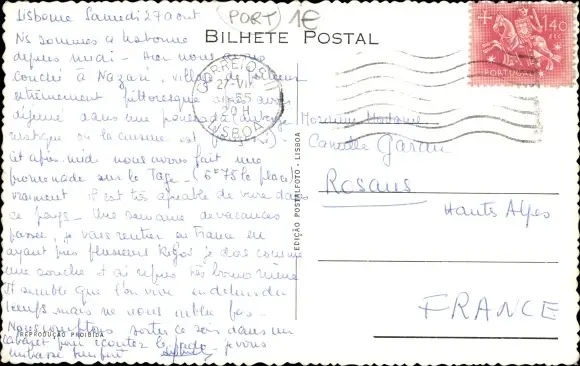 Lisbonne Samedi 27 aout
(PORT) 1€
BILHETE POSTAL
Ns sommes a Lisbonne
depuis midi - Hier nous avons
couché à Nazaré, village de pêcheurs
extrêmement pittoresque après avoir
déjeuné dans une
rustique où la cuisine est
Cet après-midi nous avons fait une
promenade sur le Tage - (6F75 la place)
vraiment il est très agréable de vivre dans
ce pays - Une semaine de vacances
passée, je vais rentrer en France en
ayant pris plusieurs Kilos, je dors comme
une souche et ai repris très bonne mine
Il semble que l'on vive en dehors du
temps mais ne vous oublie pas -
Nous comptons sortir ce soir dans un
cabaret pour écouter le fado - je vous
embrasse
CORREIOS
27-VII
55
20 H
LISBOA
40
PORTUGAL
Monsieur Madame
Camille Garcin
Rosans
Hautes Alpes
FRANCE
EDIÇÃO POSTALFOTO - LISBOA
REPRODUÇÃO PROIBIDA